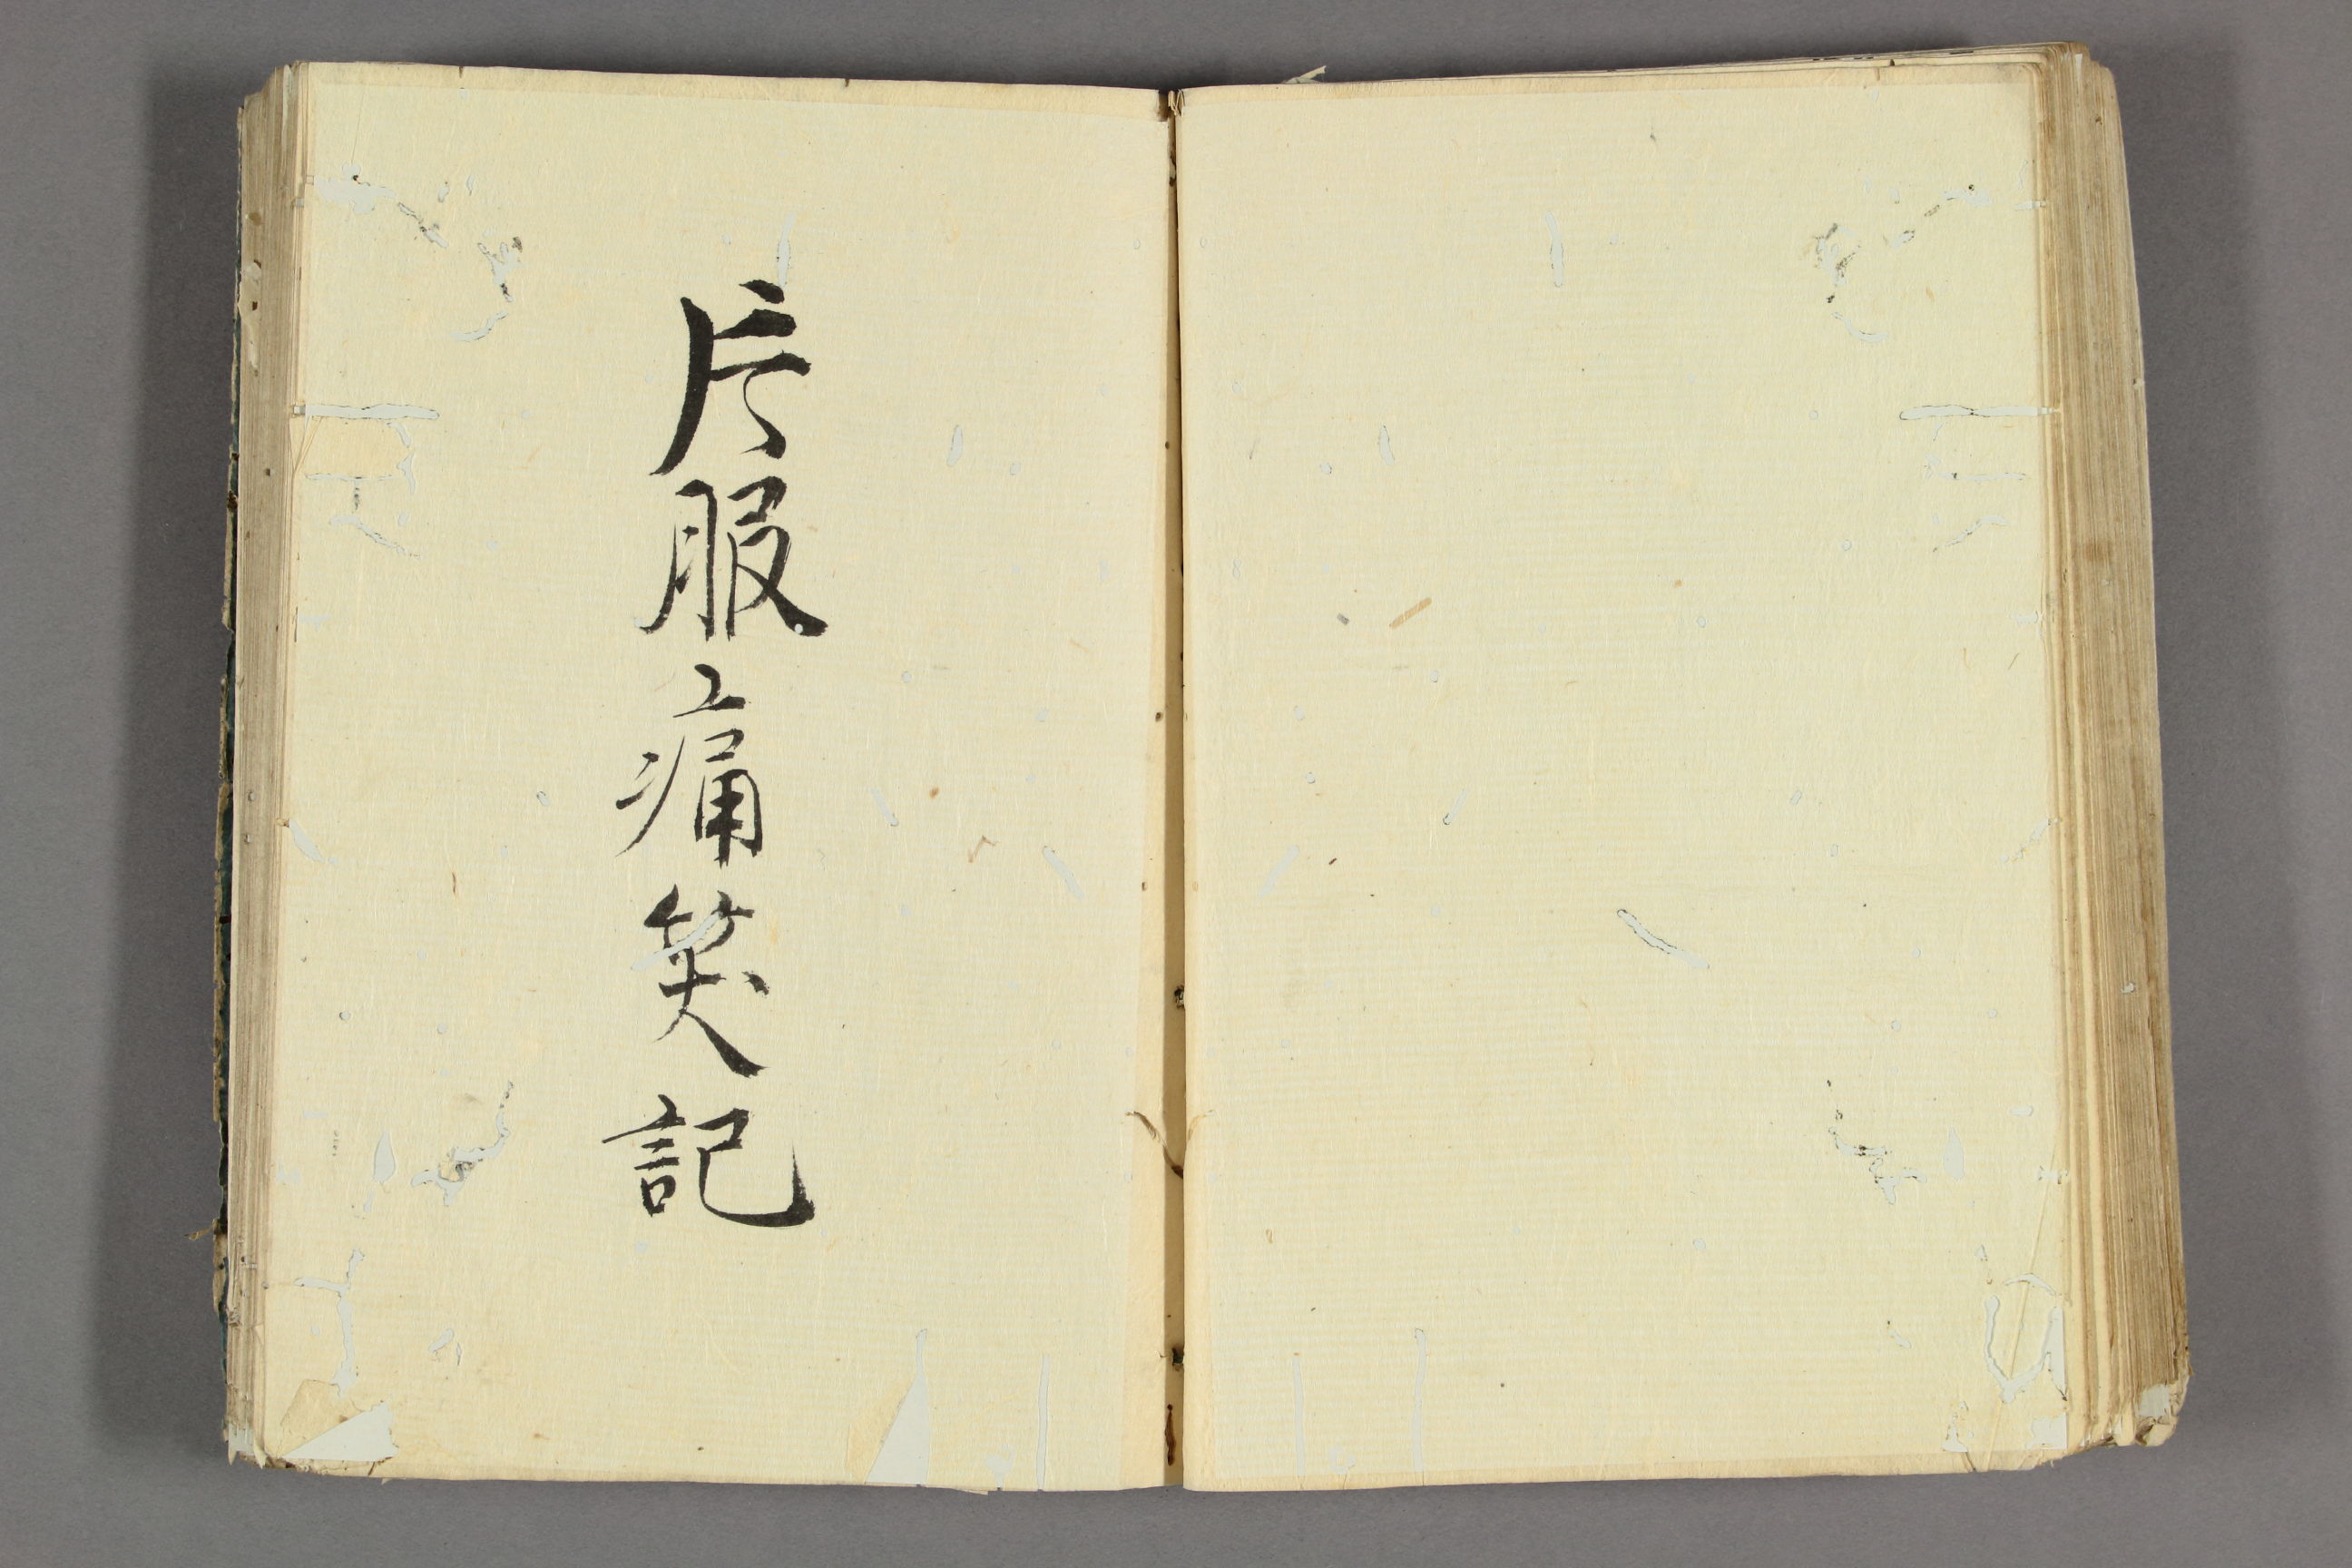 片服痛笑記